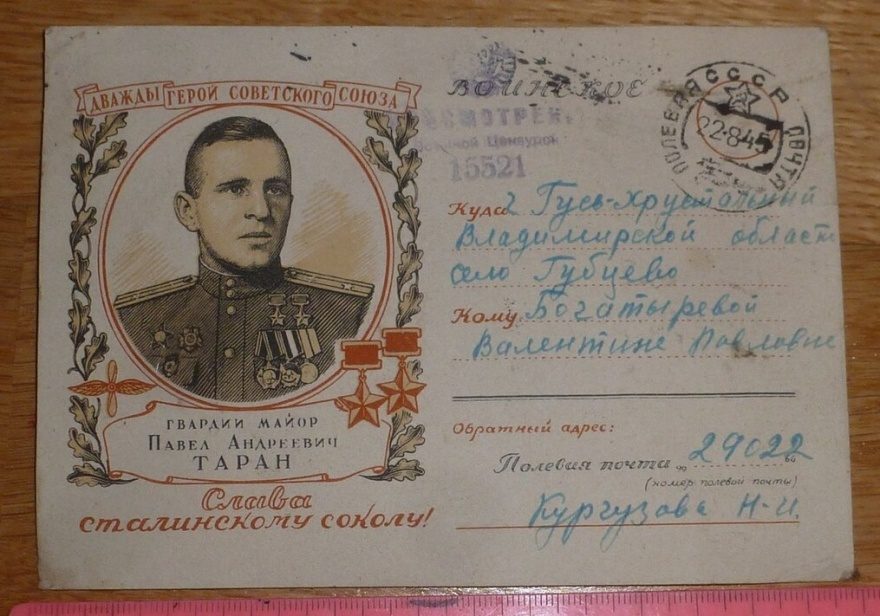 ДВАЖДЫ ГЕРОЙ СОВЕТСКОГО СОЮЗА
ГВАРДИИ МАЙОР
ПАВЕЛ АНДРЕЕВИЧ
ТАРАН
Слава
сталинскому соколу!
ВОИНСКОЕ
Военной Цензурой
15521
ПОЛЕВАЯ СССР ПОЧТА
22-8-45
Куда г Гусь-Хрустальный
Владимирской област
село Губцево
Кому Богатыревой
Валентине Павловне
Обратный адрес:
Полевая почта 29022
(номер полевой почты)
Кургузова Н-И.